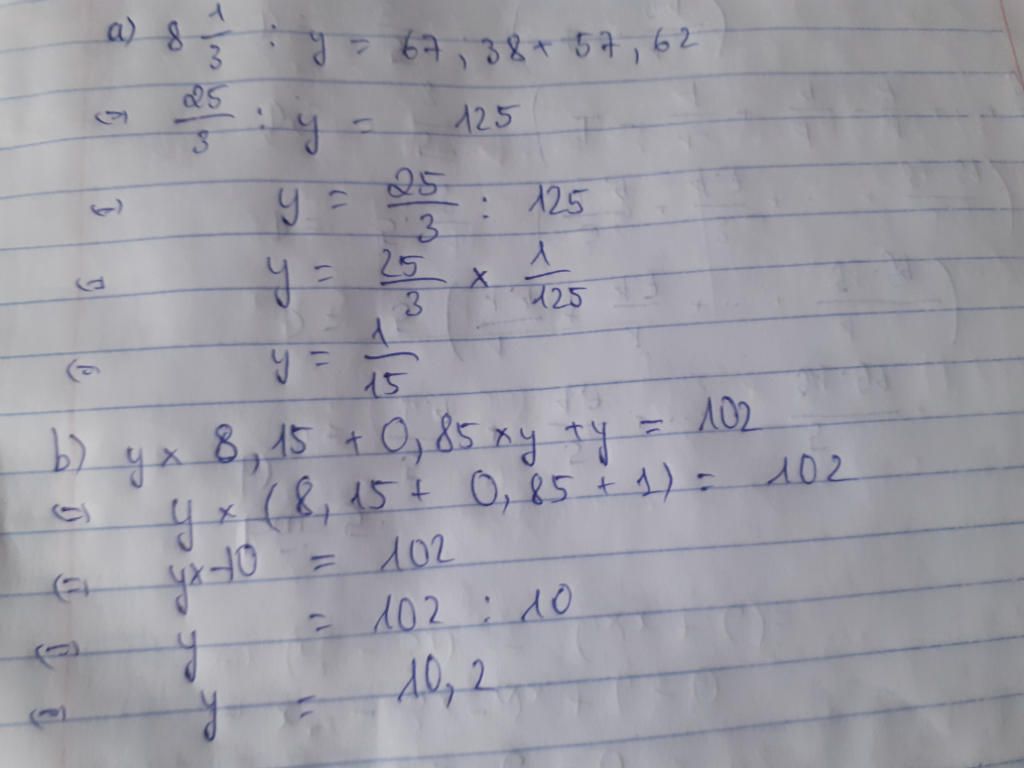 a) 8 1/3 : y = 67,38 + 57,62
⇔ 25/3 : y = 125
⇔ y = 25/3 : 125
⇔ y = 25/3 × 1/125
⇔ y = 1/15
b) y × 8,15 + 0,85 × y + y = 102
⇔ y × (8,15 + 0,85 + 1) = 102
⇔ y × 10 = 102
⇔ y = 102 : 10
⇔ y = 10,2